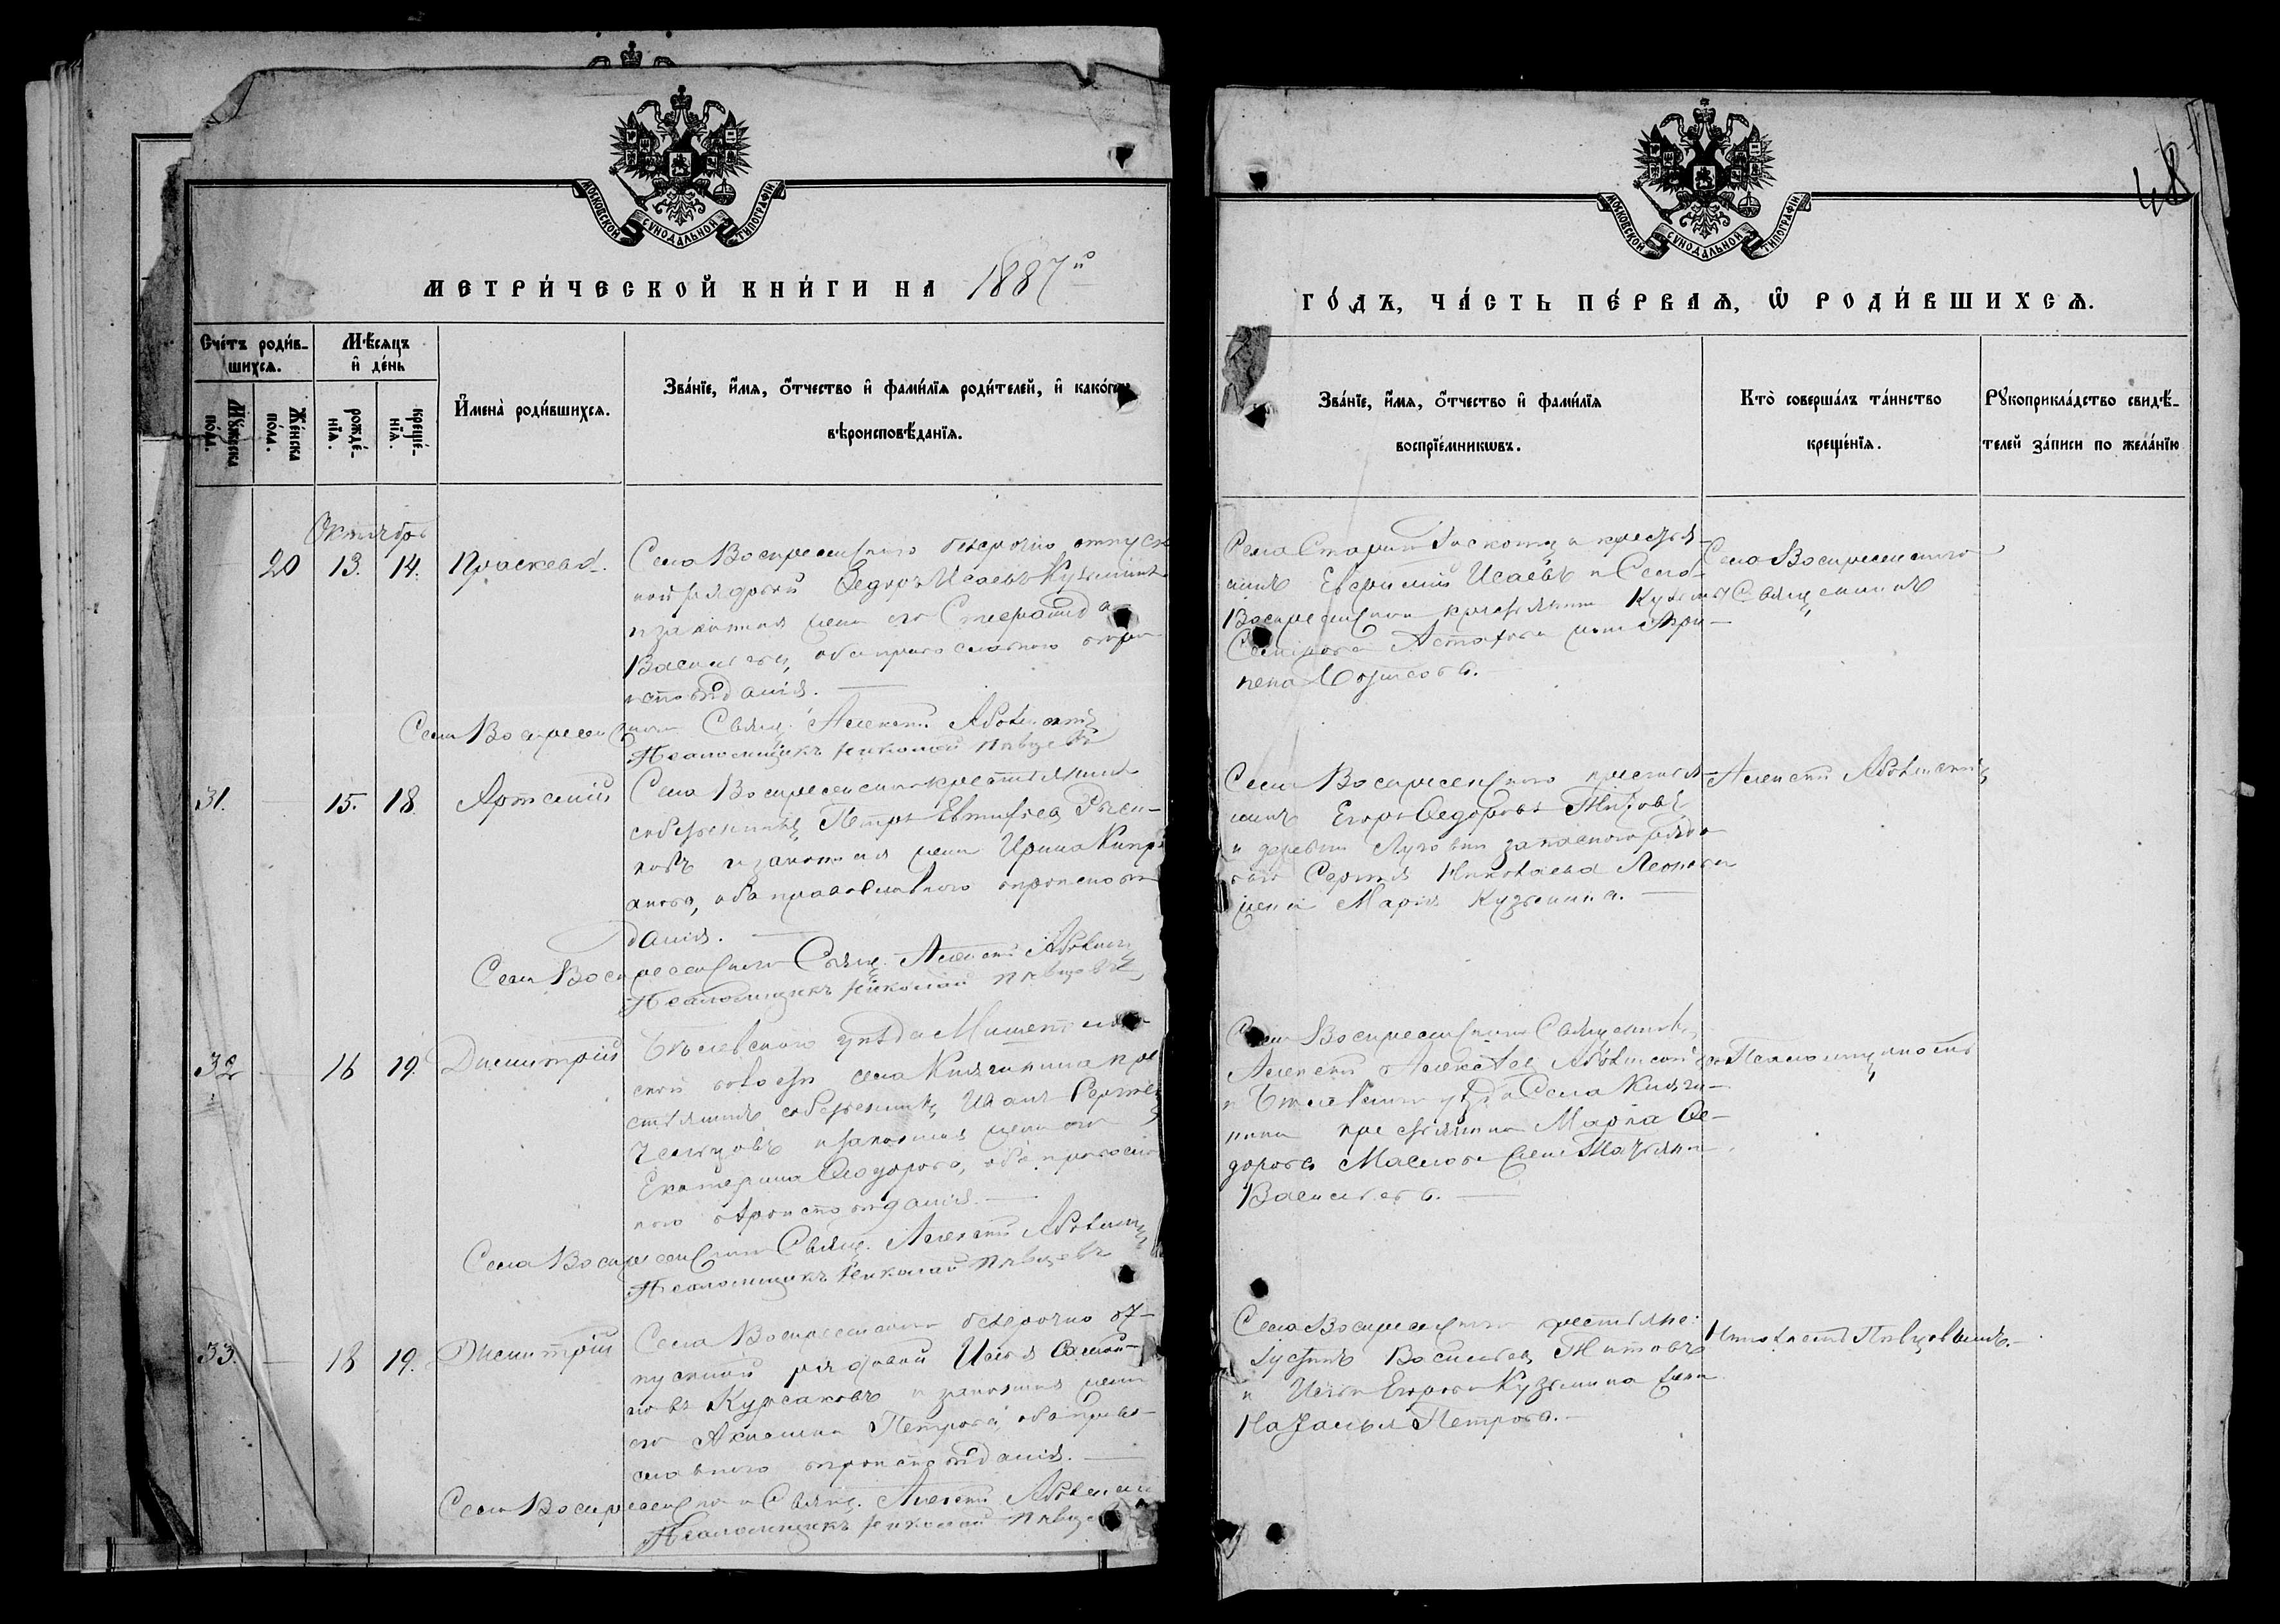 МОСКОВСКОЙ СѴНОДАЛЬНОЙ ТИПОГРАФІИ
МЕТРИ́ЧЕСКОЙ КНИ́ГИ НА 1887й
Сче́тъ роди́в-
шихсѧ.
Мꙋ́жеска
по́ла.
Же́нска
по́ла.
Мѣ́сяцъ
и҆ де́нь
рожде́-
нїѧ.
креще́-
нїѧ.
И҆мена̀ роди́вшихсѧ.
Зва́нїе, и҆́мѧ, ѻ҆́тчество и҆ фами́лїѧ роди́телей, и҆ како́гѡ
вѣроисповѣ́данїѧ.
Октябрь
20 13. 14. Праскева.
Села Воскресенскаго безсрочно отпуск
ной рядовой Ѳедоръ Исаевъ Кузьминъ
и законная жена его Стефанида
Васильева, оба православнаго вѣро-
исповѣданія.
Села Воскресенскаго Свящ. Алексѣй
Псаломщикъ Николай Пѣвцевъ
31. 15. 18. Артемій
Села Воскресенскаго крестьянинъ
собственникъ Петръ Евтифіев
и законная жена Ирина Кипрі
анова, оба православнаго вѣроисповѣ
данія.
Села Воскресенскаго Свящ. Алексѣй
Псаломщикъ Николай Пѣвцевъ
32 16 19. Димитрій
Бѣлевскаго уѣзда
ской волости села Княгинина кре
стьянинъ собственникъ Иванъ Сергѣев
и законная жена его
Екатерина Ѳеодорова, оба православ
наго вѣроисповѣданія.
Села Воскресенскаго Свящ. Алексѣй
Псаломщикъ Николай Пѣвцевъ
33. 18 19. Димитрій
Села Воскресенскаго безсрочно от-
пускной рядовой Илья Самой-
ловъ Курсаковъ и законная жена
его Акилина Петрова, оба право-
славнаго вѣроисповѣданія.
Села Воскресенскаго Свящ. Алексѣй
Псаломщикъ Николай Пѣвцевъ
48
МОСКОВСКОЙ СѴНОДАЛЬНОЙ ТИПОГРАФІИ
ГО́ДЪ, ЧА́СТЬ ПЕ́РВАѦ, Ѡ҆ РОДИ́ВШИХСѦ.
Зва́нїе, и҆́мѧ, ѻ҆́тчество и҆ фами́лїѧ
воспрїе́мникѡвъ.
Кто̀ соверша́лъ та́инство
креще́нїѧ.
Рꙋкоприкла́дство свидѣ́-
телей за́писи по жела́нїю
Села крестья-
нинъ Евфимій Исаевъ и Села
Воскресенскаго крестьянина Кузьмы
жена Агри-
пена Моисеева.
Села Воскресенскаго
Священникъ
Села Воскресенскаго крестья-
нинъ Егоръ Ѳедоровъ Титовъ
и деревни запаснаго рядо
ваго Сергѣя Николаева Леонова
жена Марія Кузьмина.
Алексѣй
Села Воскресенскаго Священникъ
Алексѣй Алексѣев
и Бѣлевскаго уѣзда Села Княги-
нина крестьянина Марка Ѳе-
дорова Маслова жена Татьяна
Васильева.
съ Псаломщикомъ
Села Воскресенскаго крестьяне:
Іустинъ Васильев Титовъ
и Ильи Егорова Кузьмина жена
Наталья Петрова.
Николаемъ Пѣвцевымъ.